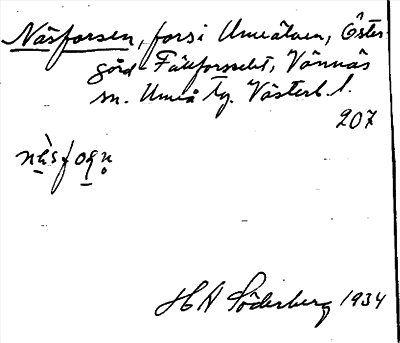 Näsforsen, fors i Umeälven, Öster
gård - Fällforsselet, Vännäs
sn. Umeå tg. Västerb. l.
207
H A Söderberg 1934